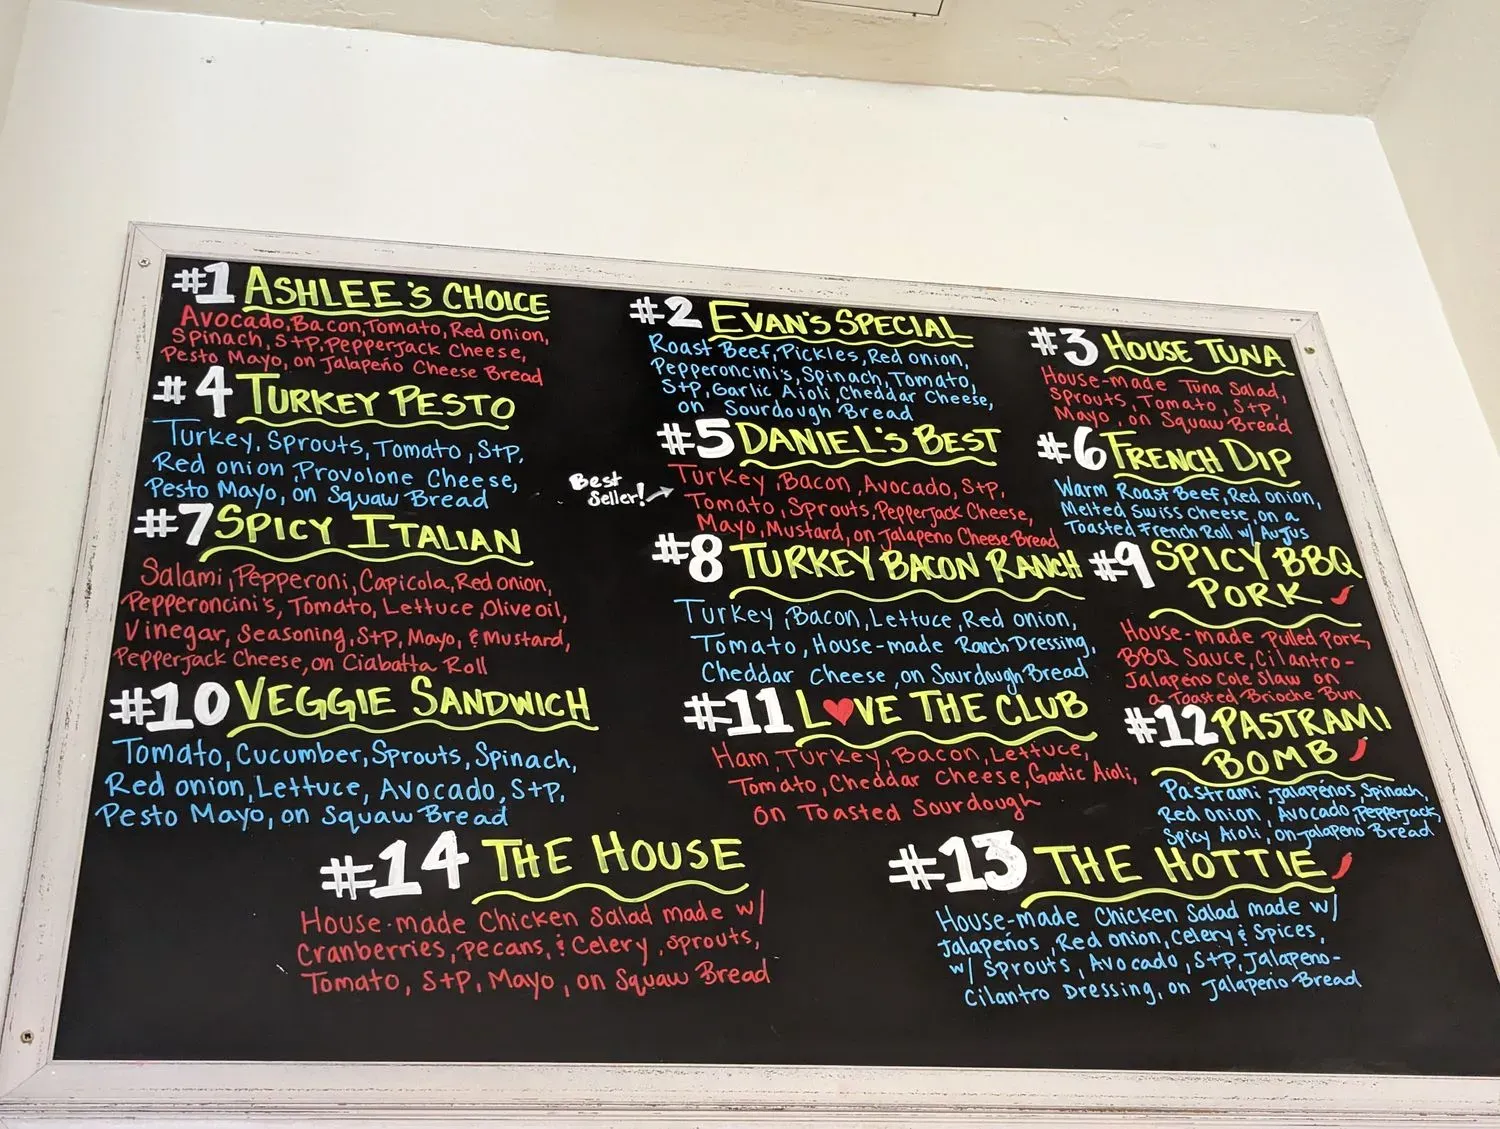 #1 ASHLEE'S CHOICE
Avocado, Bacon, Tomato, Red onion,
Spinach, S+P, Pepperjack Cheese,
Pesto Mayo, on Jalapeño Cheese Bread
#2 EVAN'S SPECIAL
Roast Beef, Pickles, Red onion,
Pepperoncini's, Spinach, Tomato,
S+P, Garlic Aioli, Cheddar Cheese,
on Sourdough Bread
#3 HOUSE TUNA
House-made Tuna Salad,
Sprouts, Tomato, S+P,
Mayo, on Squaw Bread
#4 TURKEY PESTO
Turkey, Sprouts, Tomato, S+P,
Red onion, Provolone Cheese,
Pesto Mayo, on Squaw Bread
#5 DANIEL'S BEST
Best
Seller!
Turkey, Bacon, Avocado, S+P,
Tomato, Sprouts, Pepperjack Cheese,
Mayo, Mustard, on Jalapeno Cheese Bread
#6 FRENCH DIP
Warm Roast Beef, Red onion,
Melted Swiss Cheese, on a
Toasted French Roll w/ Aujus
#7 SPICY ITALIAN
Salami, Pepperoni, Capicola, Red onion,
Pepperoncini's, Tomato, Lettuce, Olive oil,
Vinegar, Seasoning, S+P, Mayo, & Mustard,
Pepperjack Cheese, on Ciabatta Roll
#8 TURKEY BACON RANCH
Turkey, Bacon, Lettuce, Red onion,
Tomato, House-made Ranch Dressing,
Cheddar Cheese, on Sourdough Bread
#9 SPICY BBQ
PORK
House-made Pulled Pork,
BBQ Sauce, Cilantro-
Jalapeño Cole Slaw on
a Toasted Brioche Bun
#10 VEGGIE SANDWICH
Tomato, Cucumber, Sprouts, Spinach,
Red onion, Lettuce, Avocado, S+P,
Pesto Mayo, on Squaw Bread
#11 L♥VE THE CLUB
Ham, Turkey, Bacon, Lettuce,
Tomato, Cheddar Cheese, Garlic Aioli,
on Toasted Sourdough
#12 PASTRAMI
BOMB
Pastrami, Jalapéños, Spinach,
Red onion, Avocado, Pepperjack,
Spicy Aioli, on Jalapeno Bread
#14 THE HOUSE
House-made Chicken Salad made w/
Cranberries, Pecans, & Celery, Sprouts,
Tomato, S+P, Mayo, on Squaw Bread
#13 THE HOTTIE
House-made Chicken Salad made w/
Jalapeños, Red onion, Celery & Spices,
w/ Sprouts, Avocado, S+P, Jalapeno-
Cilantro Dressing, on Jalapeño Bread